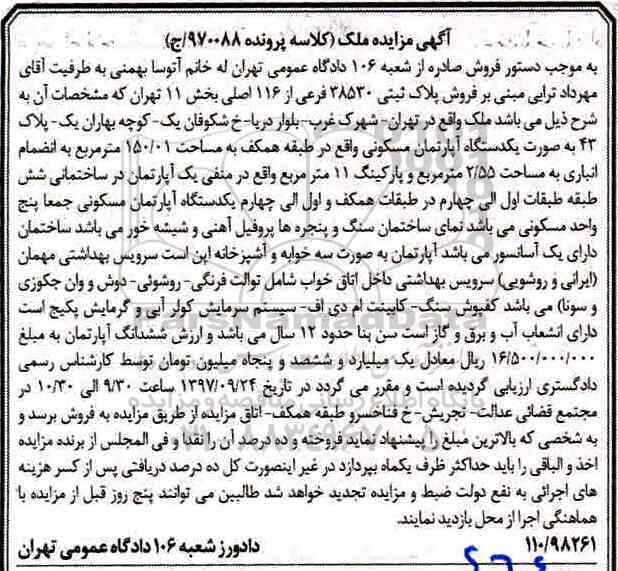 آگهی مزایده ملک (کلاسه پرونده ۹۷۰۰۸۸/ج)
به موجب دستور فروش صادره از شعبه ۱۰۶ دادگاه عمومی تهران له خانم آتوسا بهمنی به طرفیت آقای
مهرداد ترابی مبنی بر فروش پلاک ثبتی ۳۸۵۳۰ فرعی از ۱۱۶ اصلی بخش ۱۱ تهران که مشخصات آن به
شرح ذیل می باشد ملک واقع در تهران- شهرک غرب-بلوار دریا-خ شکوفان یک-کوچه بهاران یک- پلاک
۴۳ به صورت یکدستگاه آپارتمان مسکونی واقع در طبقه همکف به مساحت ۱۵۰/۰۱ مترمربع به انضمام
انباری به مساحت ۲/۵۵ مترمربع و پارکینگ ۱۱ متر مربع واقع در منفی یک آپارتمان در ساختمانی شش
طبقه طبقات اول الی چهارم در طبقات همکف و اول الی چهارم یکدستگاه آپارتمان مسکونی جمعا پنج
واحد مسکونی می باشد نمای ساختمان سنگ و پنجره ها پروفیل آهنی و شیشه خور می باشد ساختمان
دارای یک آسانسور می باشد آپارتمان به صورت سه خوابه و آشپزخانه اپن است سرویس بهداشتی مهمان
(ایرانی و روشویی) سرویس بهداشتی داخل اتاق خواب شامل توالت فرنگی- روشوئی- دوش و وان جکوزی
و سونا) می باشد کفپوش سنگ- کابینت ام دی اف- سیستم سرمایش کولر آبی و گرمایش پکیج است
دارای انشعاب آب و برق و گاز است سن بنا حدود ۱۲ سال می باشد و ارزش ششدانگ آپارتمان به مبلغ
۱۶/۵۰۰/۰۰۰/۰۰۰ ریال معادل یک میلیارد و ششصد و پنجاه میلیون تومان توسط کارشناس رسمی
دادگستری ارزیابی گردیده است و مقرر می گردد در تاریخ ۱۳۹۷/۰۹/۲۴ ساعت ۹/۳۰ الی ۱۰/۳۰ در
مجتمع قضائی عدالت- تجریش- خ فناخسرو طبقه همکف-اتاق مزایده از طریق مزایده به فروش برسد و
به شخصی که بالاترین مبلغ را پیشنهاد نماید فروخته و ده درصد آن را نقدا و فی المجلس از برنده مزایده
اخذ و الباقی را باید حداکثر ظرف یکماه بپردازد در غیر اینصورت کل ده درصد دریافتی پس از کسر هزینه
های اجرائی به نفع دولت ضبط و مزایده تجدید خواهد شد طالبین می توانند پنج روز قبل از مزایده با
هماهنگی اجرا از محل بازدید نمایند.
۱۱۰/۹۸۲۶۱ دادورز شعبه ۱۰۶ دادگاه عمومی تهران